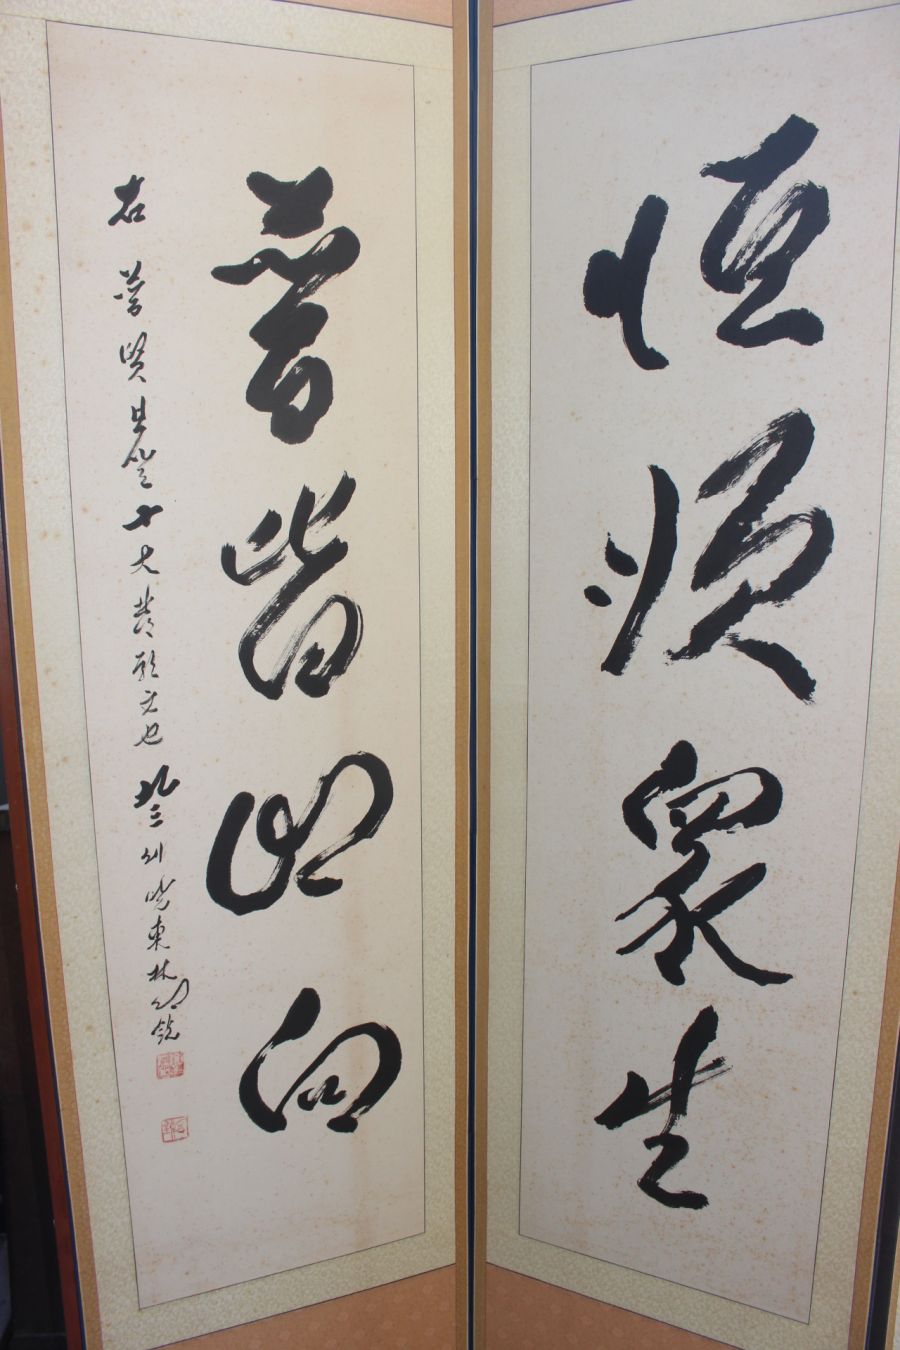 恒順衆生
普皆回向
右 普賢菩薩十大發願文也